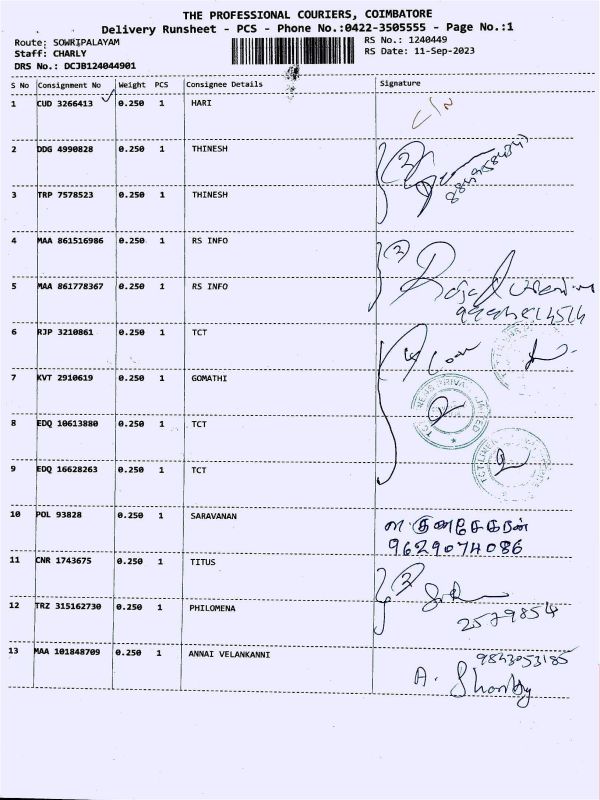 THE PROFESSIONAL COURIERS, COIMBATORE
Delivery Runsheet - PCS - Phone No.:0422-3505555 - Page No.:1
Route: SOWRIPALAYAM RS No.: 1240449
Staff: CHARLY RS Date: 11-Sep-2023
DRS No.: DCJB124044901
S No Consignment No Weight PCS Consignee Details Signature
1 CUD 3266413 0.250 1 HARI
2 DDG 4990828 0.250 1 THINESH
3 TRP 7578523 0.250 1 THINESH
4 MAA 861516986 0.250 1 RS INFO
5 MAA 861778367 0.250 1 RS INFO
6 RJP 3210861 0.250 1 TCT
7 KVT 2910619 0.250 1 GOMATHI
8 EDQ 10613880 0.250 1 TCT
9 EDQ 16628263 0.250 1 TCT
10 POL 93828 0.250 1 SARAVANAN
9629074086
11 CNR 1743675 0.250 1 TITUS
12 TRZ 315162730 0.250 1 PHILOMENA
2579854
13 MAA 101848709 0.250 1 ANNAI VELANKANNI 9843053185
A.